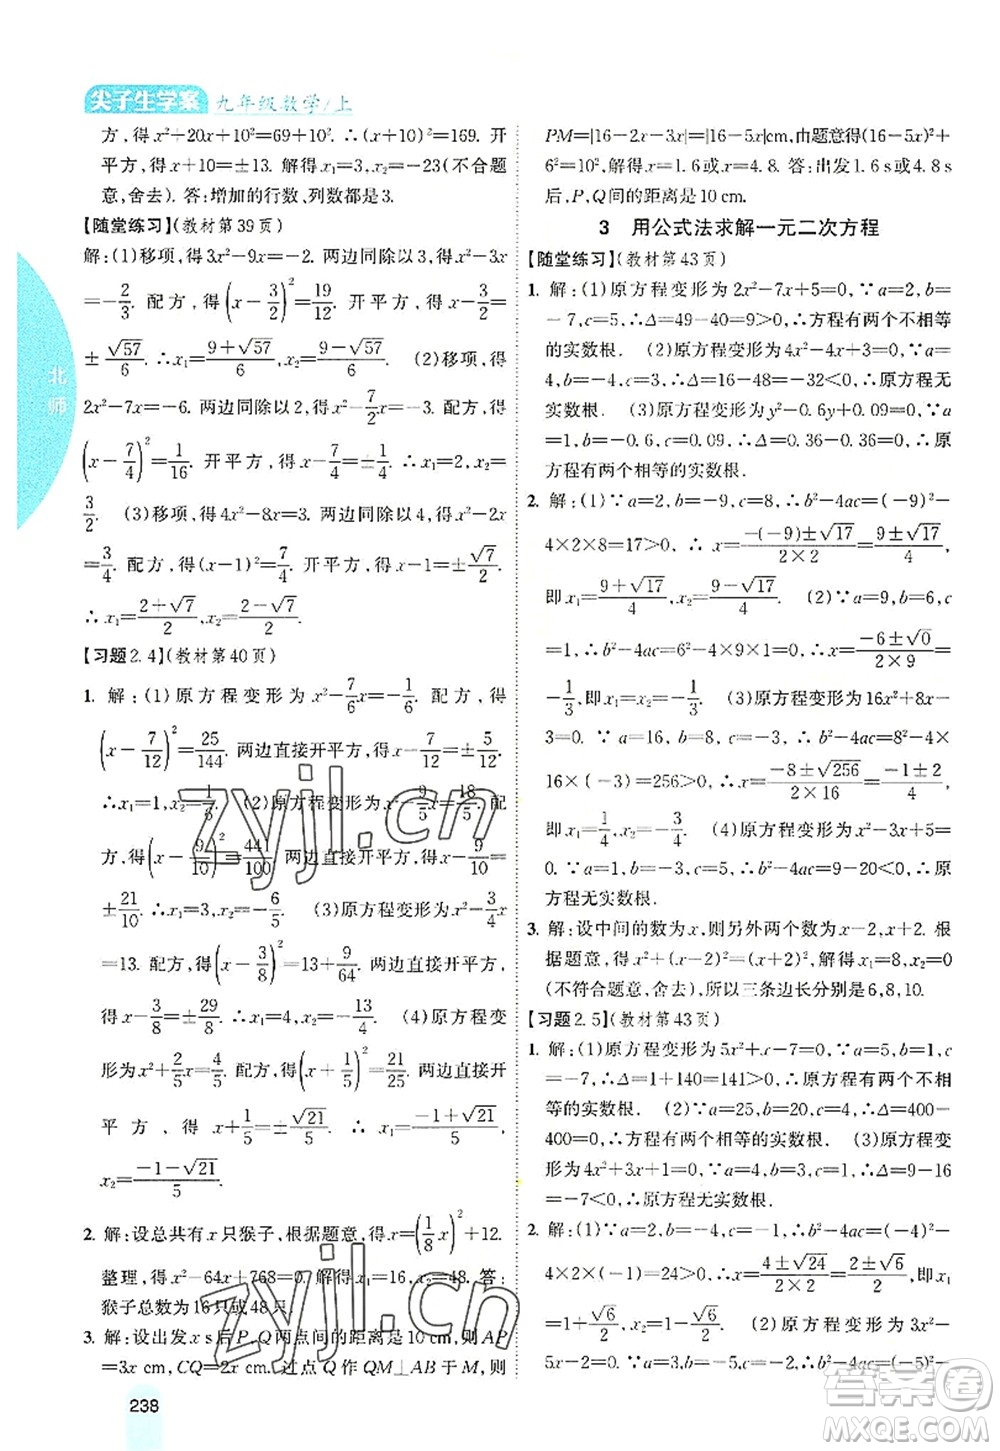 尖子生学案 九年级数学/上
方,得x²+20x+10²=69+10². ∴(x+10)²=169. 开
平方,得x+10=±13. 解得x₁=3,x₂=-23(不合题
意,舍去). 答:增加的行数、列数都是3.
【随堂练习】(教材第39页)
解:(1)移项,得3x²-9x=-2. 两边同除以3,得x²-3x=
-2/3. 配方,得(x-3/2)²=19/12. 开平方,得x-3/2=
±√57/6. ∴x₁=(9+√57)/6,x₂=(9-√57)/6. (2)移项,得
2x²-7x=-6. 两边同除以2,得x²-7/2x=-3. 配方,得
(x-7/4)²=1/16. 开平方,得x-7/4=±1/4. ∴x₁=2,x₂=
3/2. (3)移项,得4x²-8x=3. 两边同除以4,得x²-2x=
3/4. 配方,得(x-1)²=7/4. 开平方,得x-1=±√7/2.
∴x₁=(2+√7)/2,x₂=(2-√7)/2.
【习题2.4】(教材第40页)
1. 解:(1)原方程变形为x²-7/6x=-1/6. 配方,得
(x-7/12)²=25/144. 两边直接开平方,得x-7/12=±5/12.
∴x₁=1,x₂=1/6. (2)原方程变形为x²-9/5x=18/5. 配
方,得(x-9/10)²=441/100. 两边直接开平方,得x-9/10=
±21/10. ∴x₁=3,x₂=-6/5. (3)原方程变形为x²-3/4x
=13. 配方,得(x-3/8)²=13+9/64. 两边直接开平方,得
x-3/8=±29/8. ∴x₁=4,x₂=-13/4. (4)原方程变
形为x²+2/5x=4/5. 配方,得(x+1/5)²=21/25. 直接开
平方,得x+1/5=±√21/5. ∴x₁=(-1+√21)/5,
x₂=(-1-√21)/5.
2. 解:设总共有x只猴子,根据题意,得x=(1/8x)²+12.
整理,得x²-64x+768=0. 解得x₁=16,x₂=48. 答:
猴子总数为16只或48只.
3. 解:设出发x s后P,Q两点间的距离是10 cm,则AP
=3x cm,CQ=2x cm. 过点Q作QM⊥AB于M,则
238
PM=|16-2x-3x|=|16-5x|cm. 由题意得(16-5x)²+
6²=10²,解得x=1.6或x=4.8. 答:出发1.6 s或4.8 s
后,P,Q间的距离是10 cm.
3 用公式法求解一元二次方程
【随堂练习】(教材第43页)
1. 解:(1)原方程变形为2x²-7x+5=0,∵a=2,b=
-7,c=5,∴Δ=49-40=9>0,∴方程有两个不相等
的实数根. (2)原方程变形为4x²-4x+1=0,∵a=
4,b=-4,c=1,∴Δ=16-16=0,∴原方程有两个相等
实数根. (3)原方程变形为y²-0.6y+0.09=0,∵a
=1,b=-0.6,c=0.09,∴Δ=0.36-0.36=0,∴原
方程有两个相等的实数根.
2. 解:(1)∵a=2,b=-9,c=8,∴b²-4ac=(-9)²-
4×2×8=17>0. ∴x=(-(-9)±√17)/(2×2)=(9±√17)/4,
即x₁=(9+√17)/4,x₂=(9-√17)/4. (2)∵a=9,b=6,c
=1,∴b²-4ac=6²-4×9×1=0. ∴x=(-6±√0)/(2×9)=
-1/3,即x₁=x₂=-1/3. (3)原方程变形为16x²+8x-
3=0. ∵a=16,b=8,c=-3,∴b²-4ac=8²-4×
16×(-3)=256>0,∴x=(-8±√256)/(2×16)=(-1±2)/4,
即x₁=1/4,x₂=-3/4. (4)原方程变形为x²-3x+5=
0. ∵a=1,b=-3,c=5,∴b²-4ac=9-20<0,∴原
方程无实数根.
3. 解:设中间的数为x,则另外两个数为x-2,x+2. 根
据题意,得(x-2)²+x²=(x+2)². 解得x₁=8,x₂=0
(不符合题意,舍去),所以三条边长分别是6,8,10.
【习题2.5】(教材第43页)
1. 解:(1)原方程变形为5x²+x-7=0,∵a=5,b=1,c
=-7,∴Δ=1+140=141>0,∴方程有两个不相等
的实数根. (2)∵a=25,b=20,c=4,∴Δ=400-
400=0,∴方程有两个相等的实数根. (3)原方程变
形为4x²+3x+1=0,∵a=4,b=3,c=1,∴Δ=9-16
=-7<0,∴原方程无实数根.
2. 解:(1)∵a=2,b=-4,c=-1,∴b²-4ac=(-4)²-
4×2×(-1)=24>0. ∴x=(4±√24)/(2×2)=(4±2√6)/4
=1±√6/2,∴x₁=1+√6/2,x₂=1-√6/2. (2)原方程变形
为3x²-5x+2=0. ∵a=3,b=-5,c=2,∴b²-4ac=(-5)²-
北师
zyjl.cn
zyjl.cn
答案圈
MXQE.COM